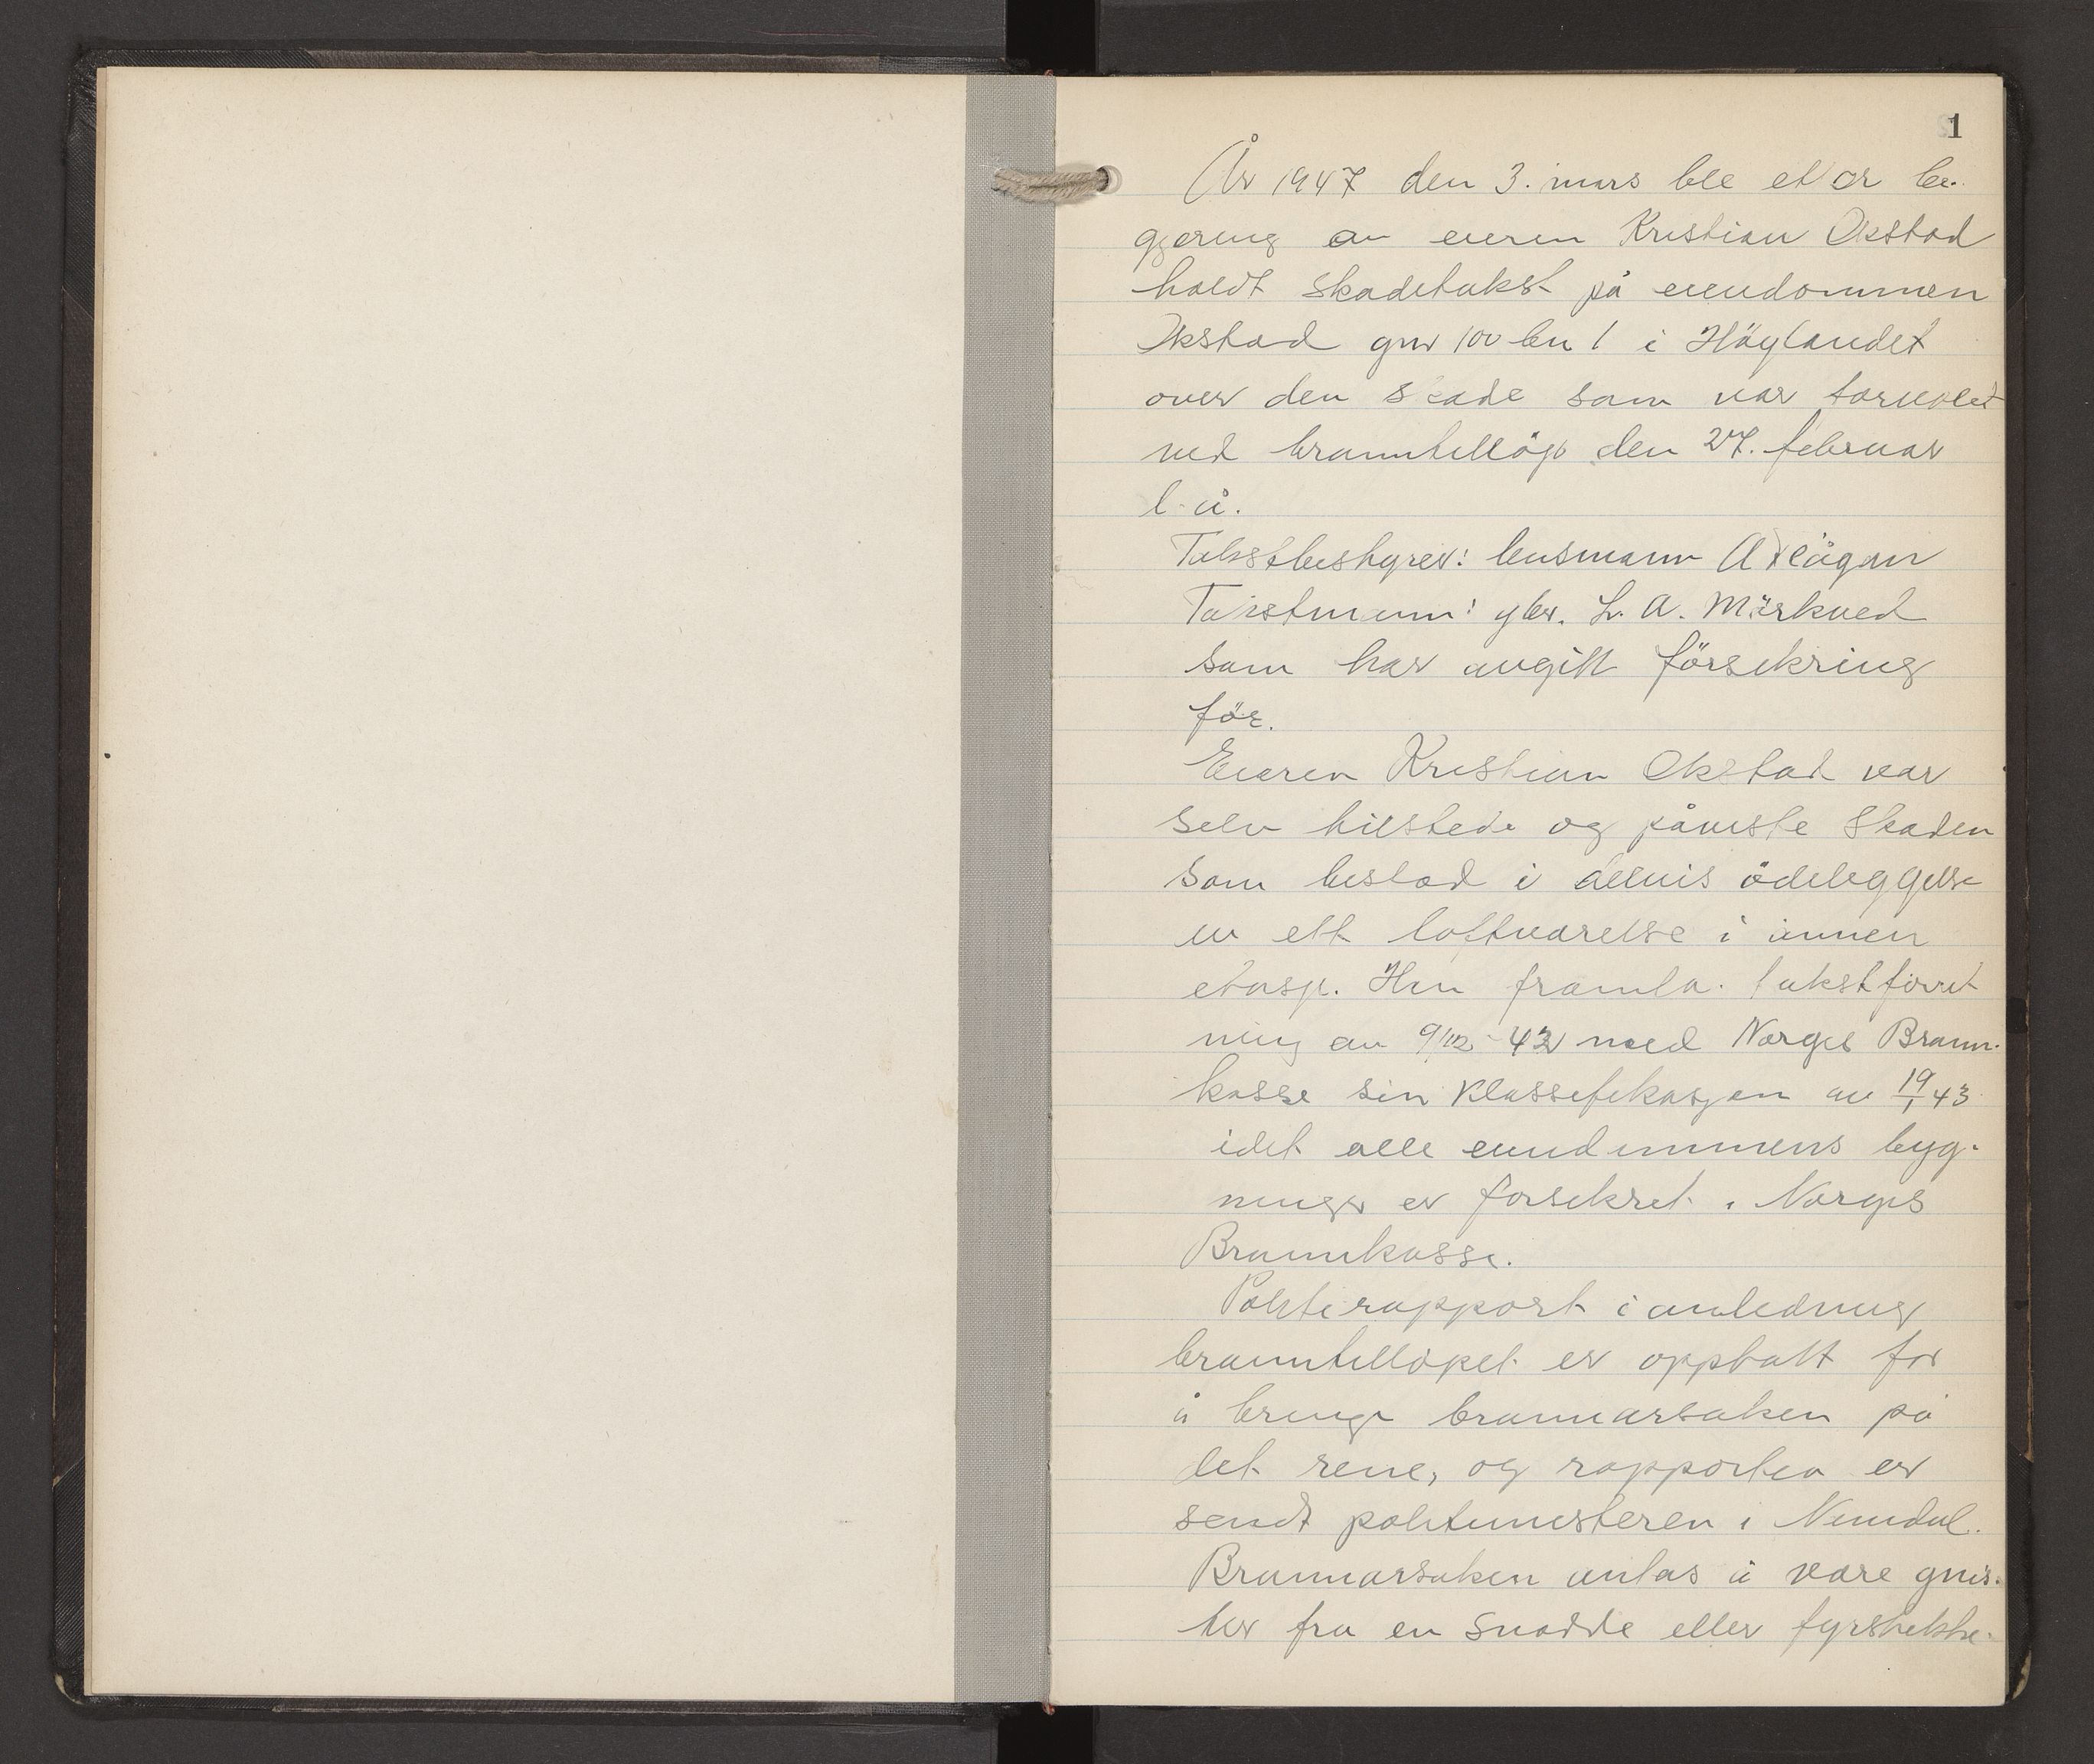 1
År 1947 den 3. mars ble etter be-
gjering av eieren Kristian Okstad
holdt skadetakst på eiendommen
Okstad gnr 100 bn 1 i Höylandet
over den skade som var forvoldt
ved branntilløp den 27. februar
l. å.
Takstbestyrer: lensmann A
Takstmann: gbr. L. A. Mörkved
som har avgitt försikring
för.
Eieren Kristian Okstad var
selv tilstede og påviste skaden
som bestod i delvis ödeleggelse
av ett loftværelse i annen
etasje. Han framla takstforret
ning av 9/12-42 med Norges Brann-
kasse sin klassefikasjon av 19/1 43
idet alle eiendommens byg-
ninger er forsikret i Norges
Brannkasse.
Politirapport i anledning
branntilløpet er opptatt for
å bringe brannårsaken på
det rene, og rapporten er
sendt politimesteren i Namdal.
Brannårsaken antas å være gnis-
ter fra en snadde eller fyrstikke-